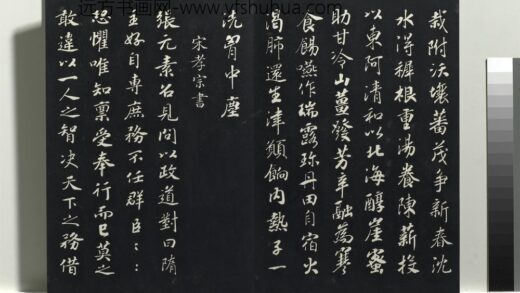 远方书画网
栽附沃壤蕃茂爭新春沈
水得穉根重湯養陳薪投
以東阿清和以北海醇崖蜜
助甘冷山薑發芳辛融爲寒
食餳嚥作瑞露珎丹田自宿火
渴肺還生津願餉内熱子一
洗胷中塵
宋孝宗書
張元素召見問以政道對曰隋
主好自專庶務不任群臣::
恐懼唯知稟受奉行而已莫之
敢違以一人之智决天下之務借